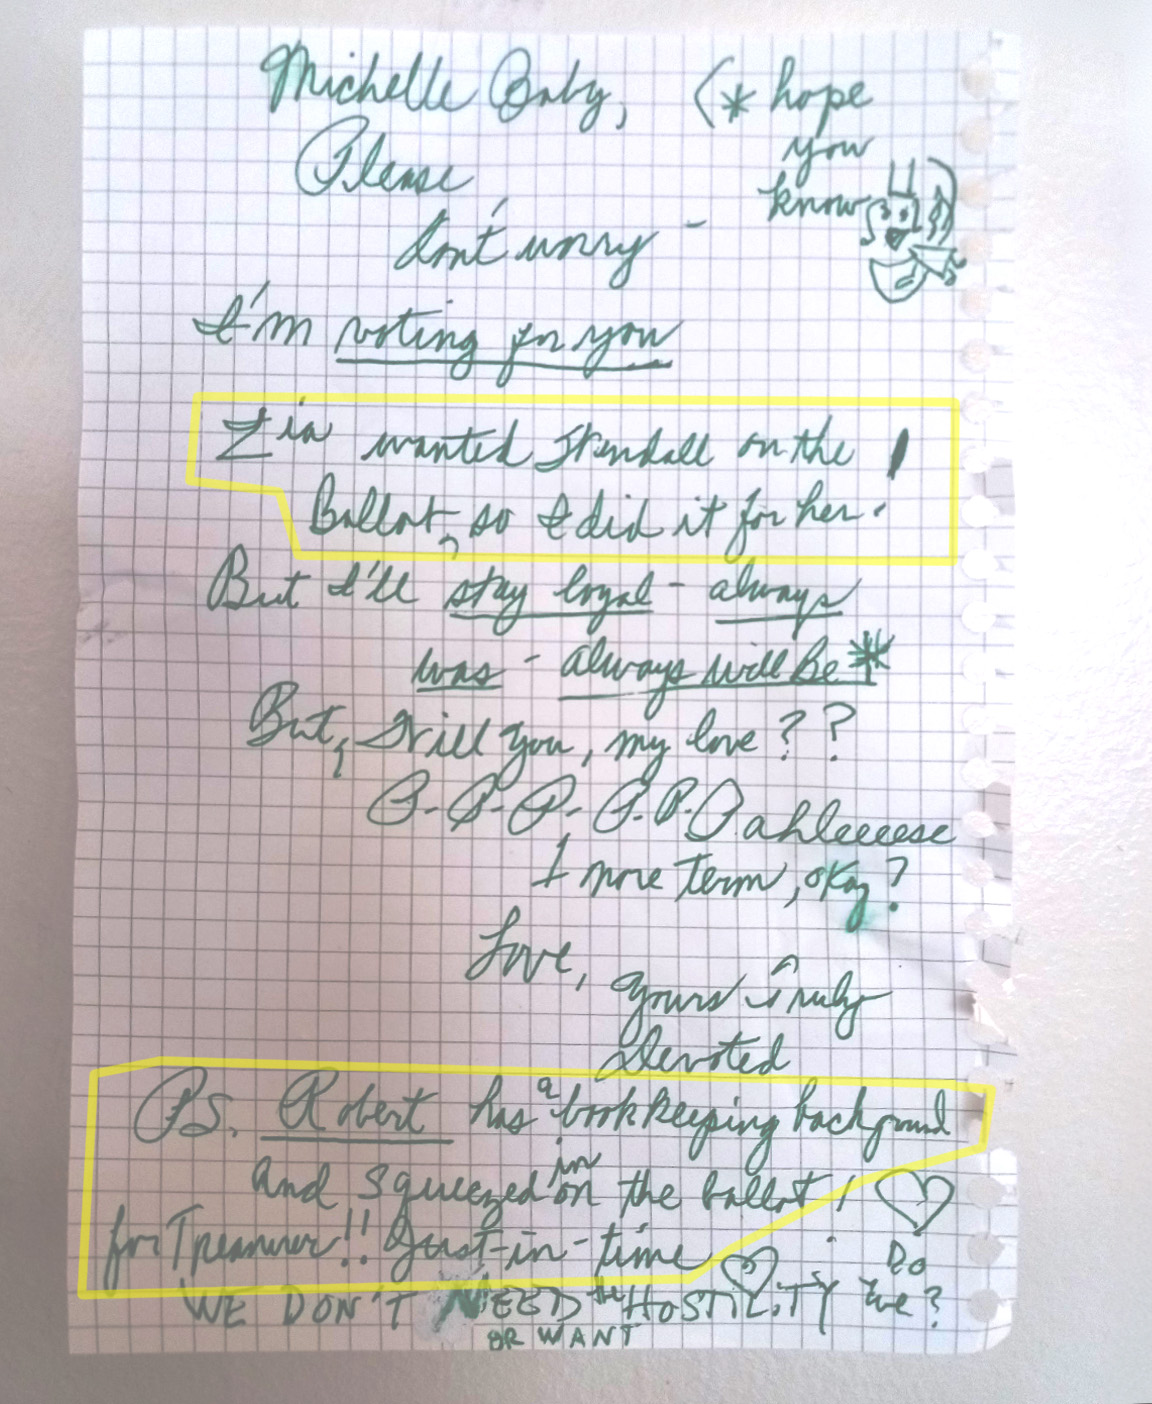 Michelle Baby, (* hope
you
know
Please
don't worry -
I'm voting for you
Zia wanted Kendall on the
Ballot, so I did it for her!
But I'll stay loyal - always
was - always will Be *
But, Will you, my love ? ?
P-P-P-P.P.Pahleeeese
1 more Term, okay?
Love,
Yours Truly
Devoted
PS. Robert has a bookkeeping background
and squeezed in on the ballot !
for Treasurer!! Just-in-time
WE DON'T NEED the HOSTILITY Do we?
OR WANT